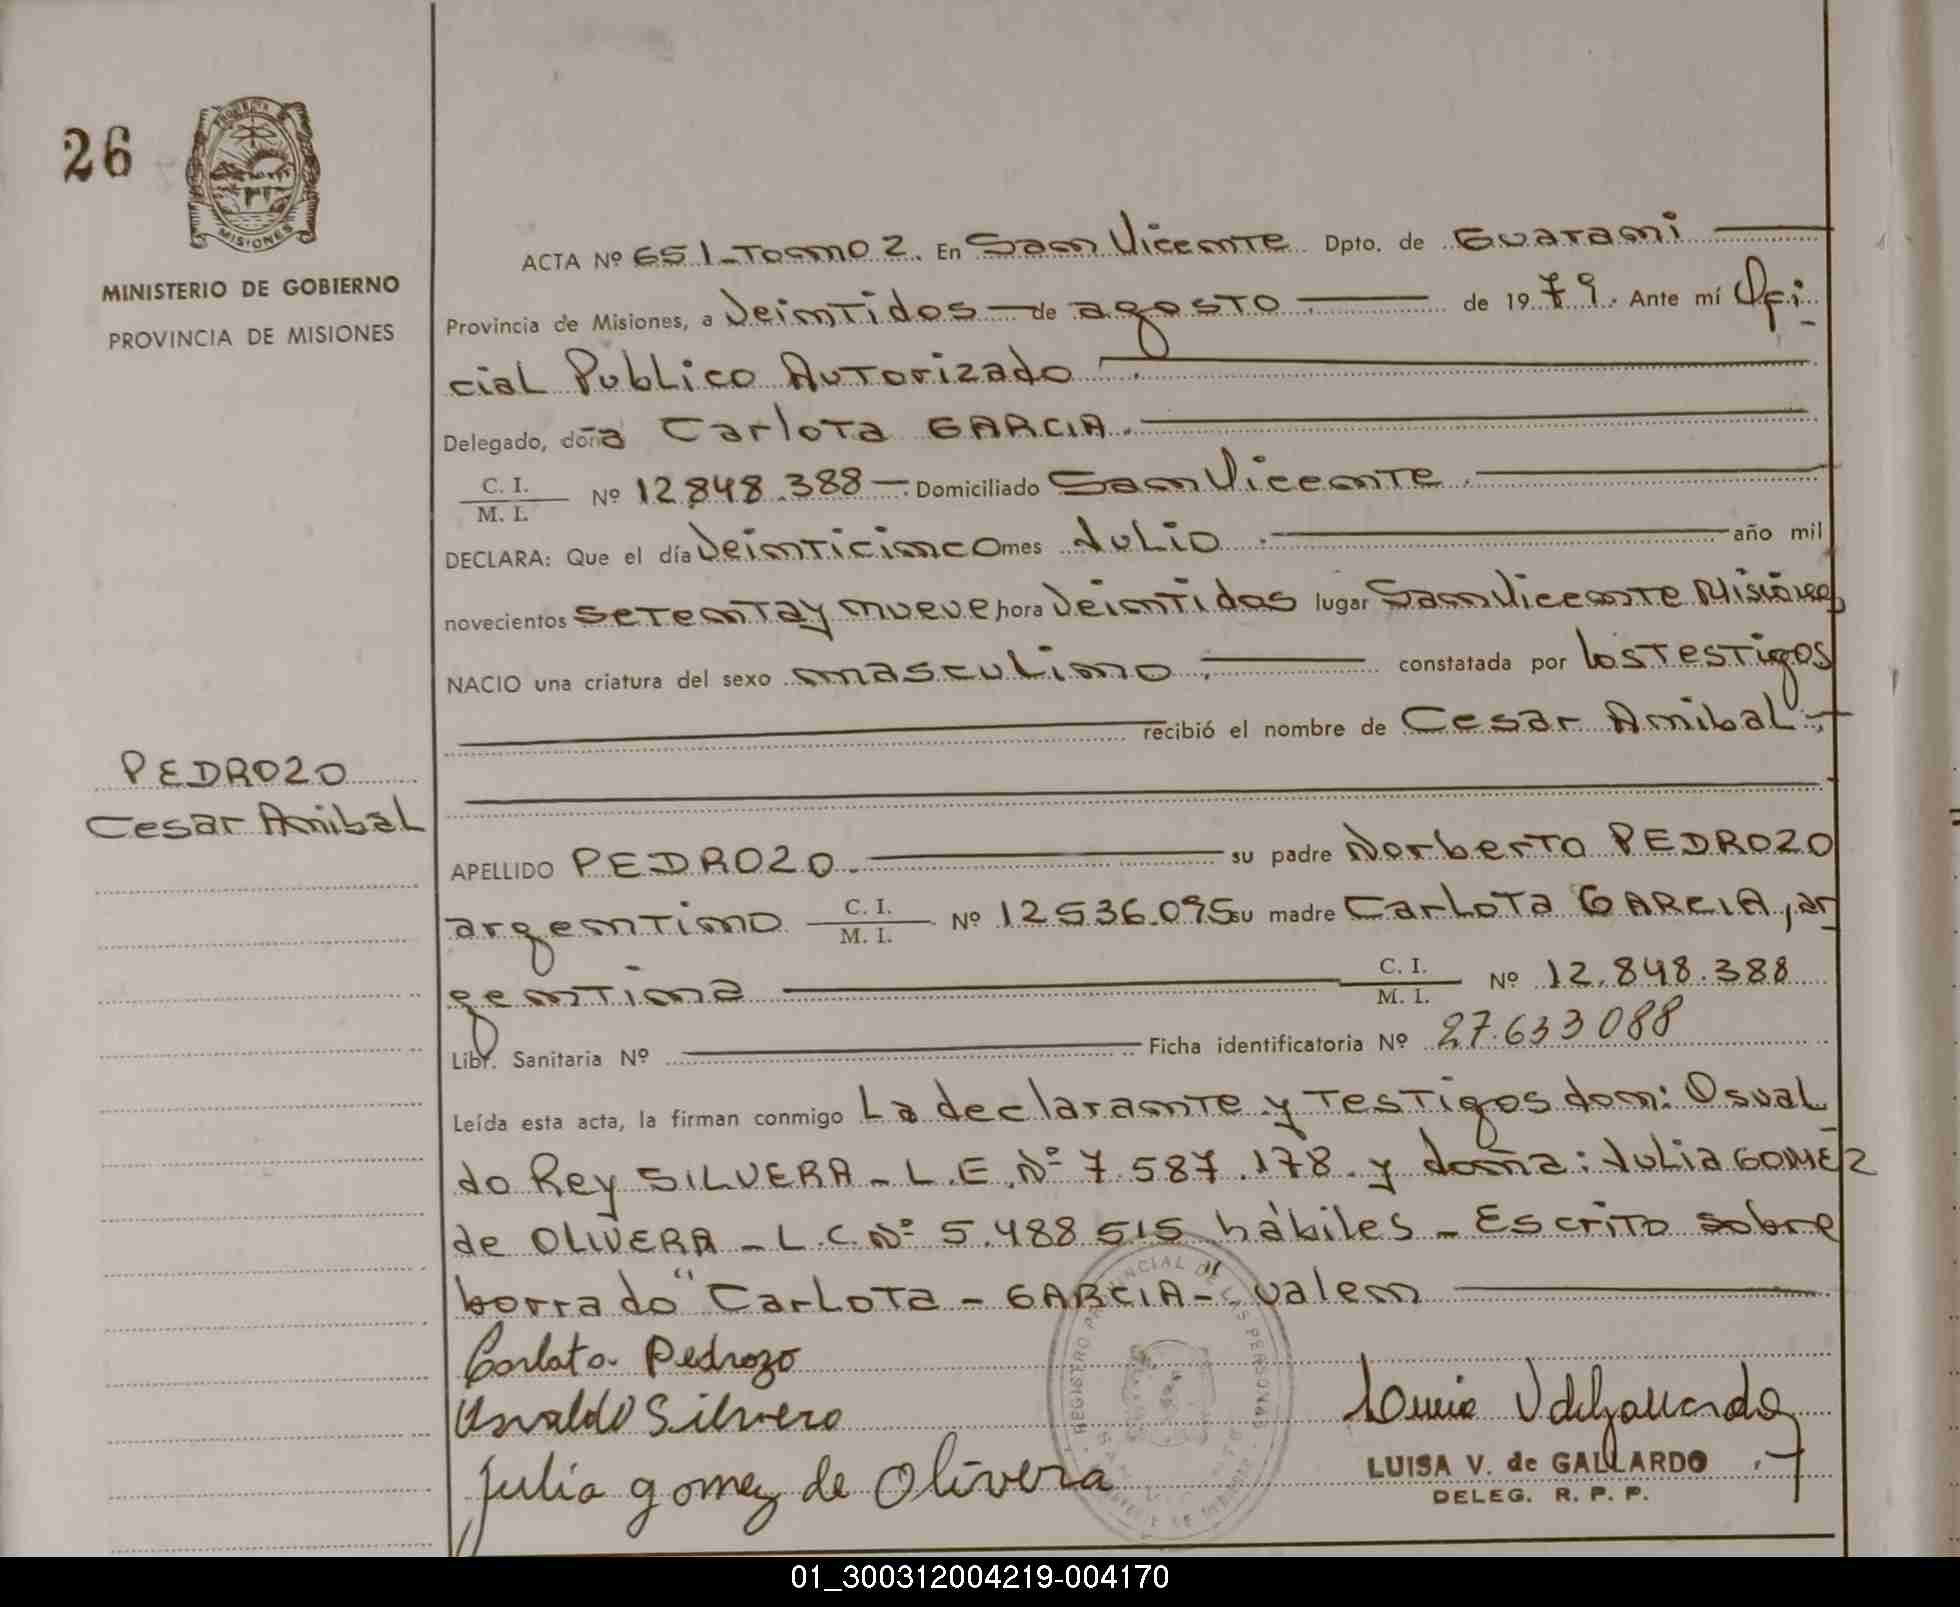 26
MISIONES
MINISTERIO DE GOBIERNO
PROVINCIA DE MISIONES
ACTA Nº 651-Tomo 2. En San Vicente Dpto. de Guarani
Provincia de Misiones, a Veintidos de agosto de 1979. Ante mí Ofi
cial Publico Autorizado
Delegado, doña Carlota GARCIA.
C. I.
M. I. Nº 12.848.388 - Domiciliado San Vicente
DECLARA: Que el día Veinticinco mes Julio año mil
novecientos setenta y nueve hora Veintidos lugar San Vicente Misiones
NACIO una criatura del sexo masculino constatada por los Testigos
recibió el nombre de Cesar Anibal
PEDROZO
Cesar Anibal
APELLIDO PEDROZO. su padre Norberto PEDROZO
argentino C. I.
M. I. Nº 12536.095 su madre Carlota GARCIA, ar
gentina C. I.
M. I. Nº 12.848.388
Libr. Sanitaria Nº Ficha identificatoria Nº 27.633088
Leída esta acta, la firman conmigo La declarante y Testigos don: Osval
do Rey SILVERA - L.E. Nº 7.587.178. y doña: Julia GOMEZ
de OLIVERA - L.C. Nº 5.488 515 hábiles - Escrito sobre
borrado "Carlota - GARCIA-" valen
Carlota Pedrozo
Osvaldo Silvera
Julia gomez de Olivera
REGISTRO PROVINCIAL DE LAS PERSONAS
LUISA V. de GALLARDO
DELEG. R. P. P.
01_300312004219-004170